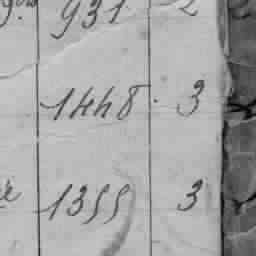 931 2
1448 · 3
1355 3